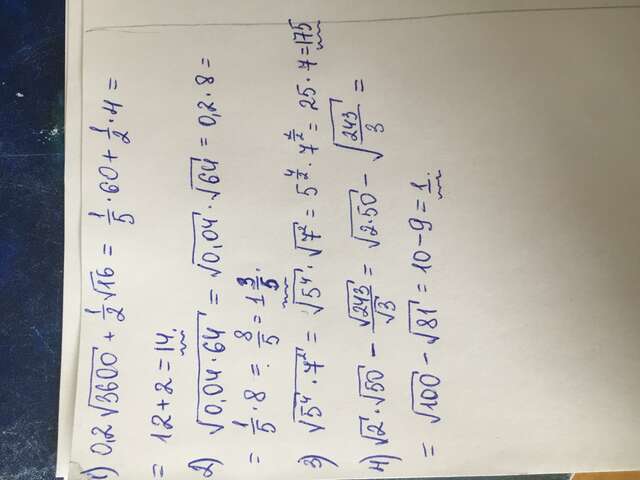 1) 0,2√3600 + 1/2 √16 = 1/5 · 60 + 1/2 · 4 =
= 12 + 2 = 14.
2) √(0,04 · 64) = √0,04 · √64 = 0,2 · 8 =
= 1/5 · 8 = 8/5 = 1 3/5.
3) √(5⁴ · 7²) = √5⁴ · √7² = 5^(4/2) · 7^(2/2) = 25 · 7 = 175
4) √2 · √50 − √243/√3 = √(2·50) − √(243/3) =
= √100 − √81 = 10 − 9 = 1.